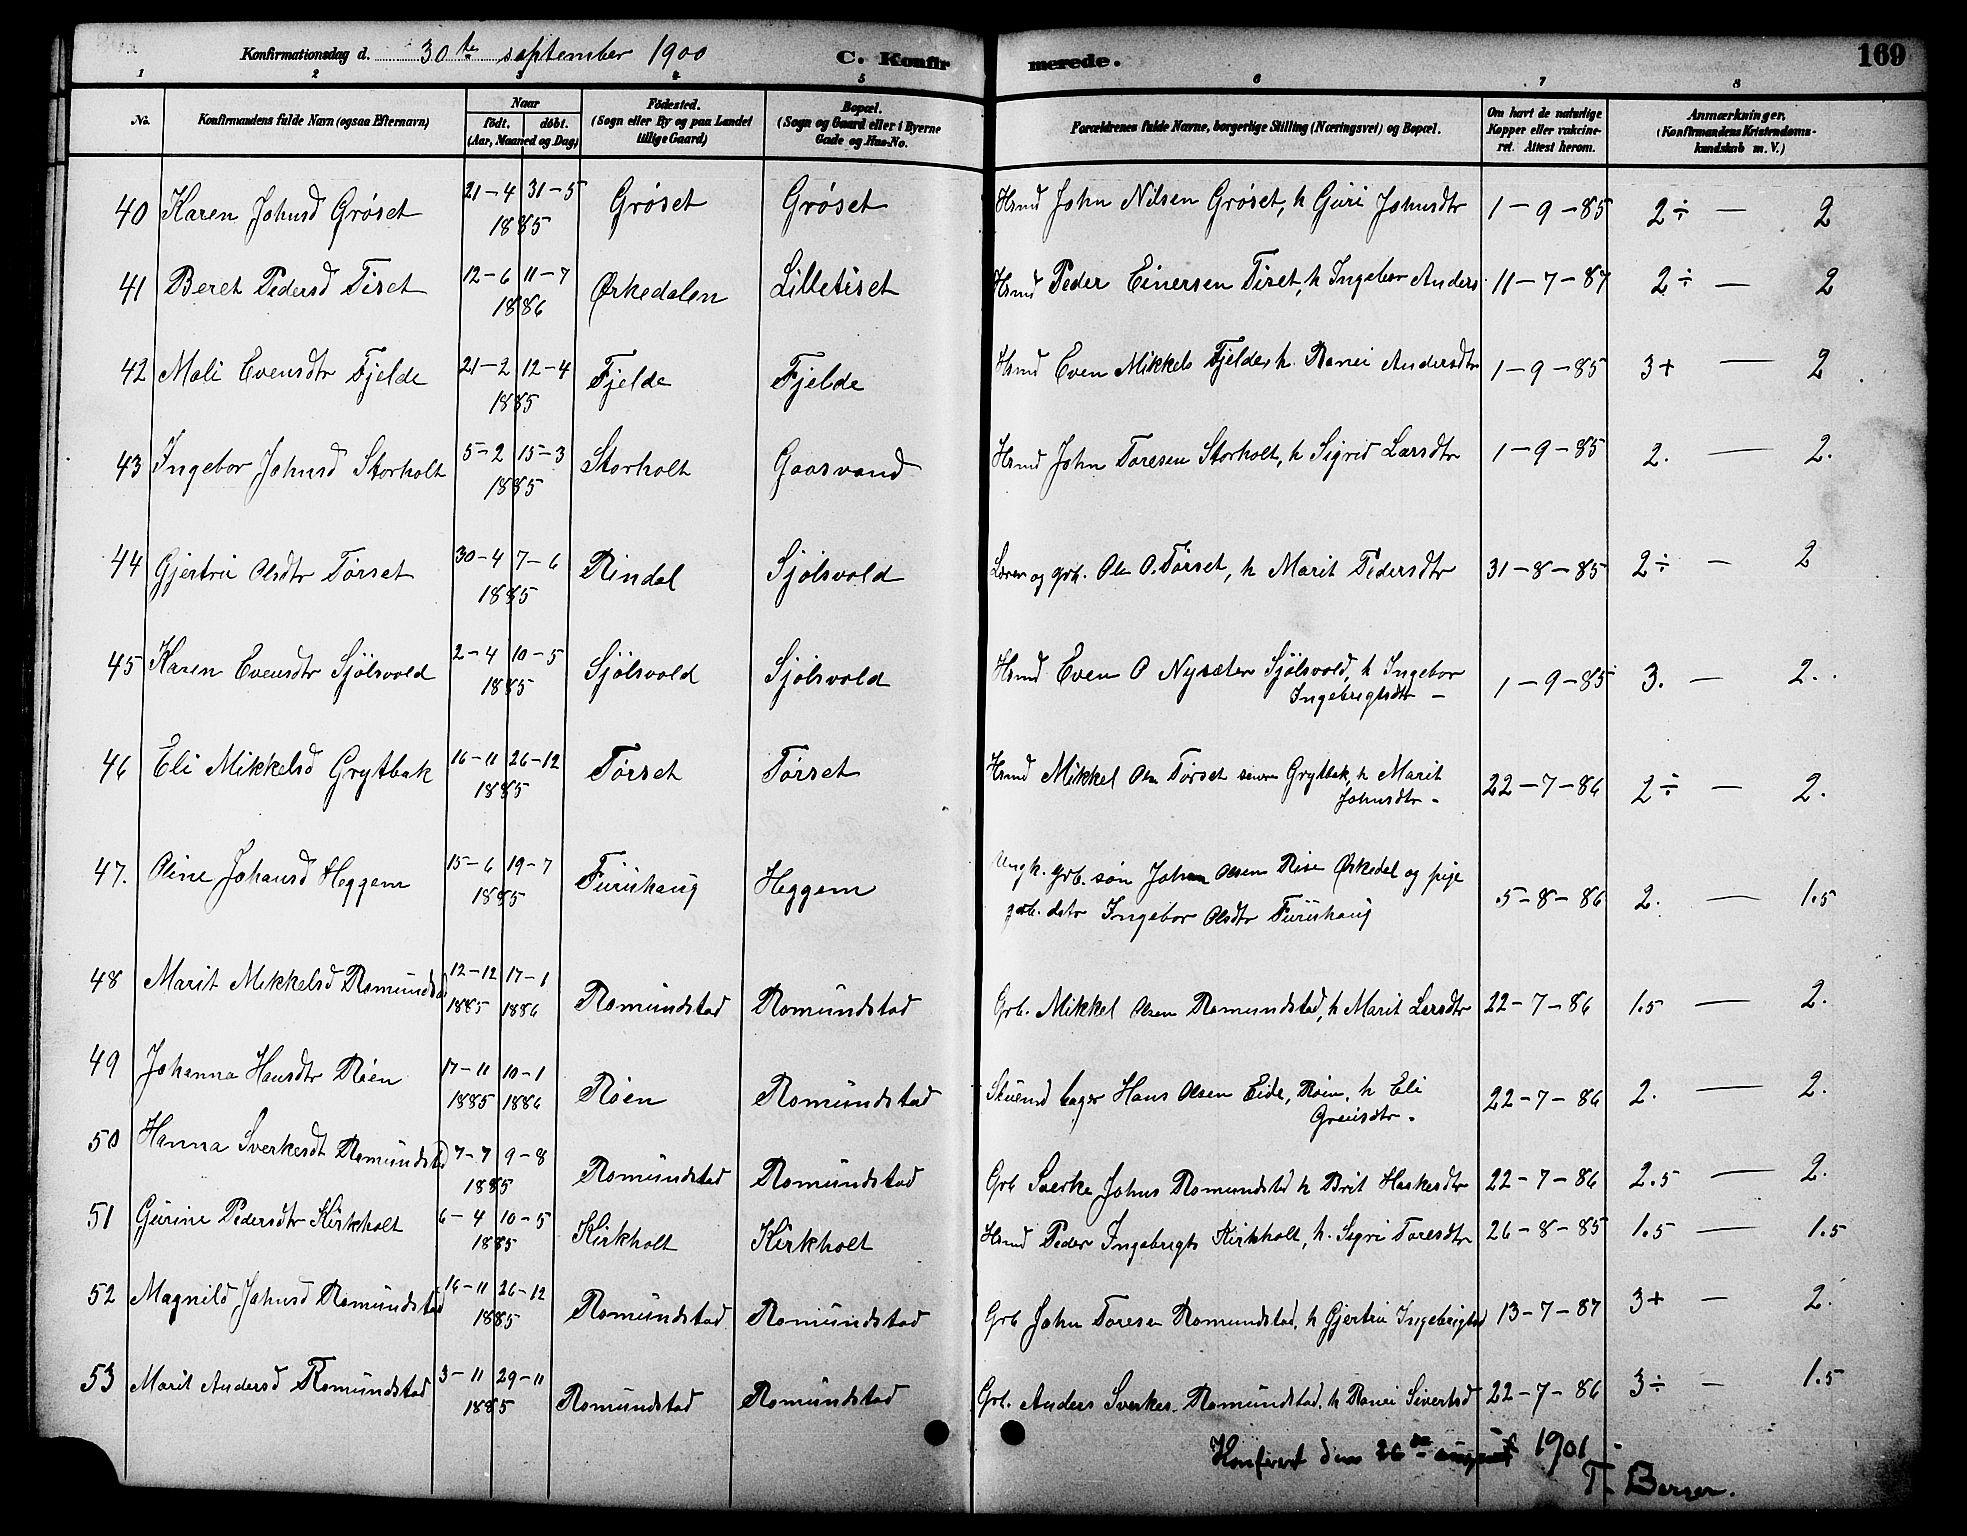 Konfirmationsdag d. 30te september 1900 C. Konfirmerede. 169
1 2 3 4 5 6 7 8
No. Konfirmandens fulde Navn (ogsaa Efternavn) Naar født. døbt. (Aar, Maaned og Dag) Fødested. (Sogn eller By og paa Landet tillige Gaard) Bopæl. (Sogn og Gaard eller i Byerne Gade og Hus-No. Forældrenes fulde Navne, borgerlige Stilling (Næringsvei) og Bopæl. Om havt de naturlige Kopper eller vakcineret. Attest herom. Anmærkninger, (Konfirmandens Kristendomskundskab m. V.)
40 Karen Johnsd Grøset 21-4 31-5 1885 Grøset Grøset Hsmd John Nilsen Grøset, h Guri Johnsdtr 1-9-85 2÷ — 2
41 Beret Pedersd Tiset 12-6 11-7 1886 Ørkedalen Lilletiset Hsmd Peder Einersen Tiset, h Ingebor Anders. 11-7-87 2÷ — 2
42 Mali Evensdtr Fjelde 21-2 12-4 1885 Fjelde Fjelde Hsmd Even Mikkels Fjelde, h. Ranei Andersdtr 1-9-85 3+ — 2
43 Ingebor Johnsd Storholt 5-2 15-3 1885 Storholt Gaasvand Hsmd John Toresen Storholt, h Sigrid Larsdtr 1-9-85 2. — 2.
44 Gjertru Olsdtr Tørset 30-4 7-6 1885 Rindal Sjølsvold Lærer og grb. Ole O. Tørset, h Marit Pedersdtr 31-8-85 2÷ — 2
45 Karen Evensdtr Sjölsvold 2-4 10-5 1885 Sjölsvold Sjölsvold Hsmd Even O Nysæter Sjölsvold, h Ingebor
Ingebrigtsdtr — 1-9-85 3. — 2.
46 Eli Mikkelsd Grytbak 16-11 26-12 1885 Tørset Tørset Hsmd Mikkel Olsn Tørset senere Grytbak, h Marit
Johnsdtr - 22-7-86 2÷ — 2.
47. Oline Johansd Heggem 15-6 19-7 1885 Furuhaug Heggem Ungk. grb. søn Johan Olsen Rise Ørkedal og pige
grb. datr Ingebor Olsdtr Furuhaug 5-8-86 2. — 1.5
48 Marit Mikkelsd Romundstad 12-12 1885 17-1 1886 Romundstad Romundstad Grb. Mikkel Olsen Romundstad, h Marit Larsdtr 22-7-86 1.5 — 2.
49 Johanna Hansdtr Røen 17-11 1885 10-1 1886 Røen Romundstad Skuemd bager Hans Olsen Eide, Røin, h Eli
Greiisdtr. 22-7-86 2. — 2.
50 Hanna Sverkesdt Romundstd 7-7 9-8 1885 Romundstad Romundstad Grb Sverke Johns Romundstd h Brit Haskesdtr 22-7-86 2.5 — 2.
51 Gurine Pedersdtr Kirkholt 6-4 10-5 1885 Kirkholt Kirkholt Hsmd Peder Ingebrigts Kirkholt, h. Sigri Toresdtr 26-8-85 1.5 — 1.5
52 Magnild Johnsd Romundstad 16-11 26-12 1885 Romundstad Romundstad Grb John Toresen Romundstad, h Gjertru Ingebrigtsd 13-7-87 3+ — 2.
53 Marit Andersd Romundstad 3-11 29-11 1885 Romundstad Romundstad Grb. Anders Sverkes. Romundstad, h Ranei Sivertsd 22-7-86 3÷ — 1.5
Konferert den 26de august 1901
T.